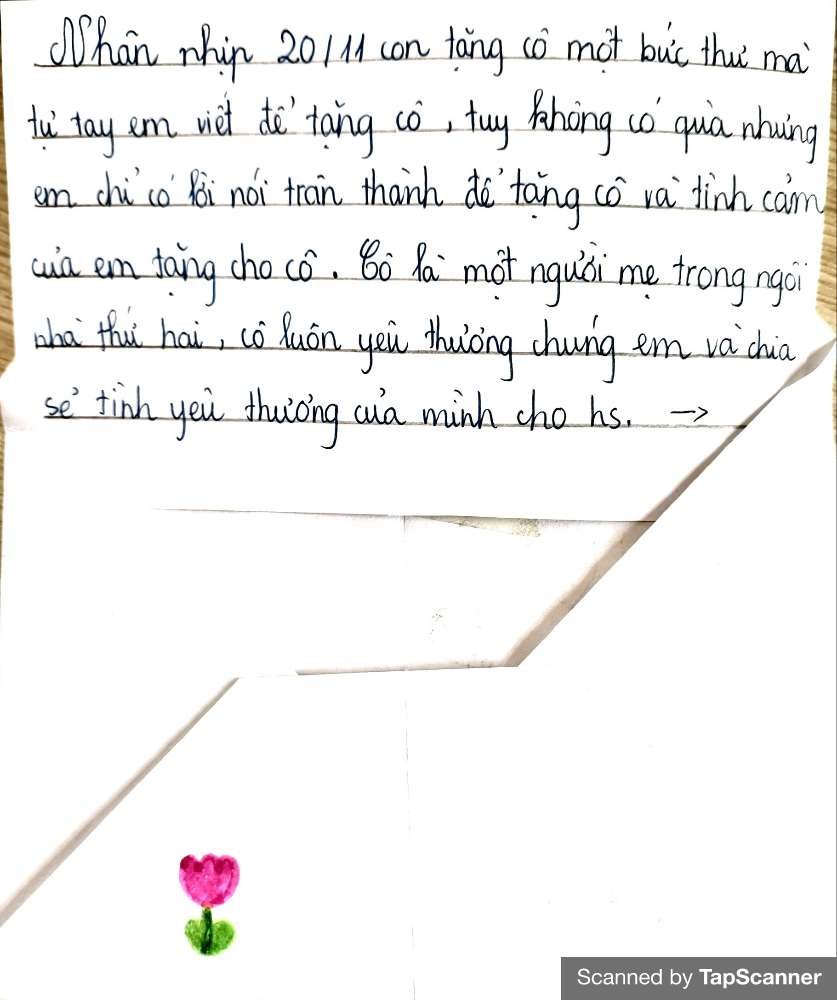 Nhân nhịp 20/11 con tặng cô một bức thư mà
tự tay em viết để tặng cô, tuy không có quà nhưng
em chỉ có lời nói trân thành để tặng cô và tình cảm
của em tặng cho cô. Cô là một người mẹ trong ngôi
nhà thứ hai, cô luôn yêu thương chúng em và chia
sẻ tình yêu thương của mình cho hs. →
Scanned by TapScanner